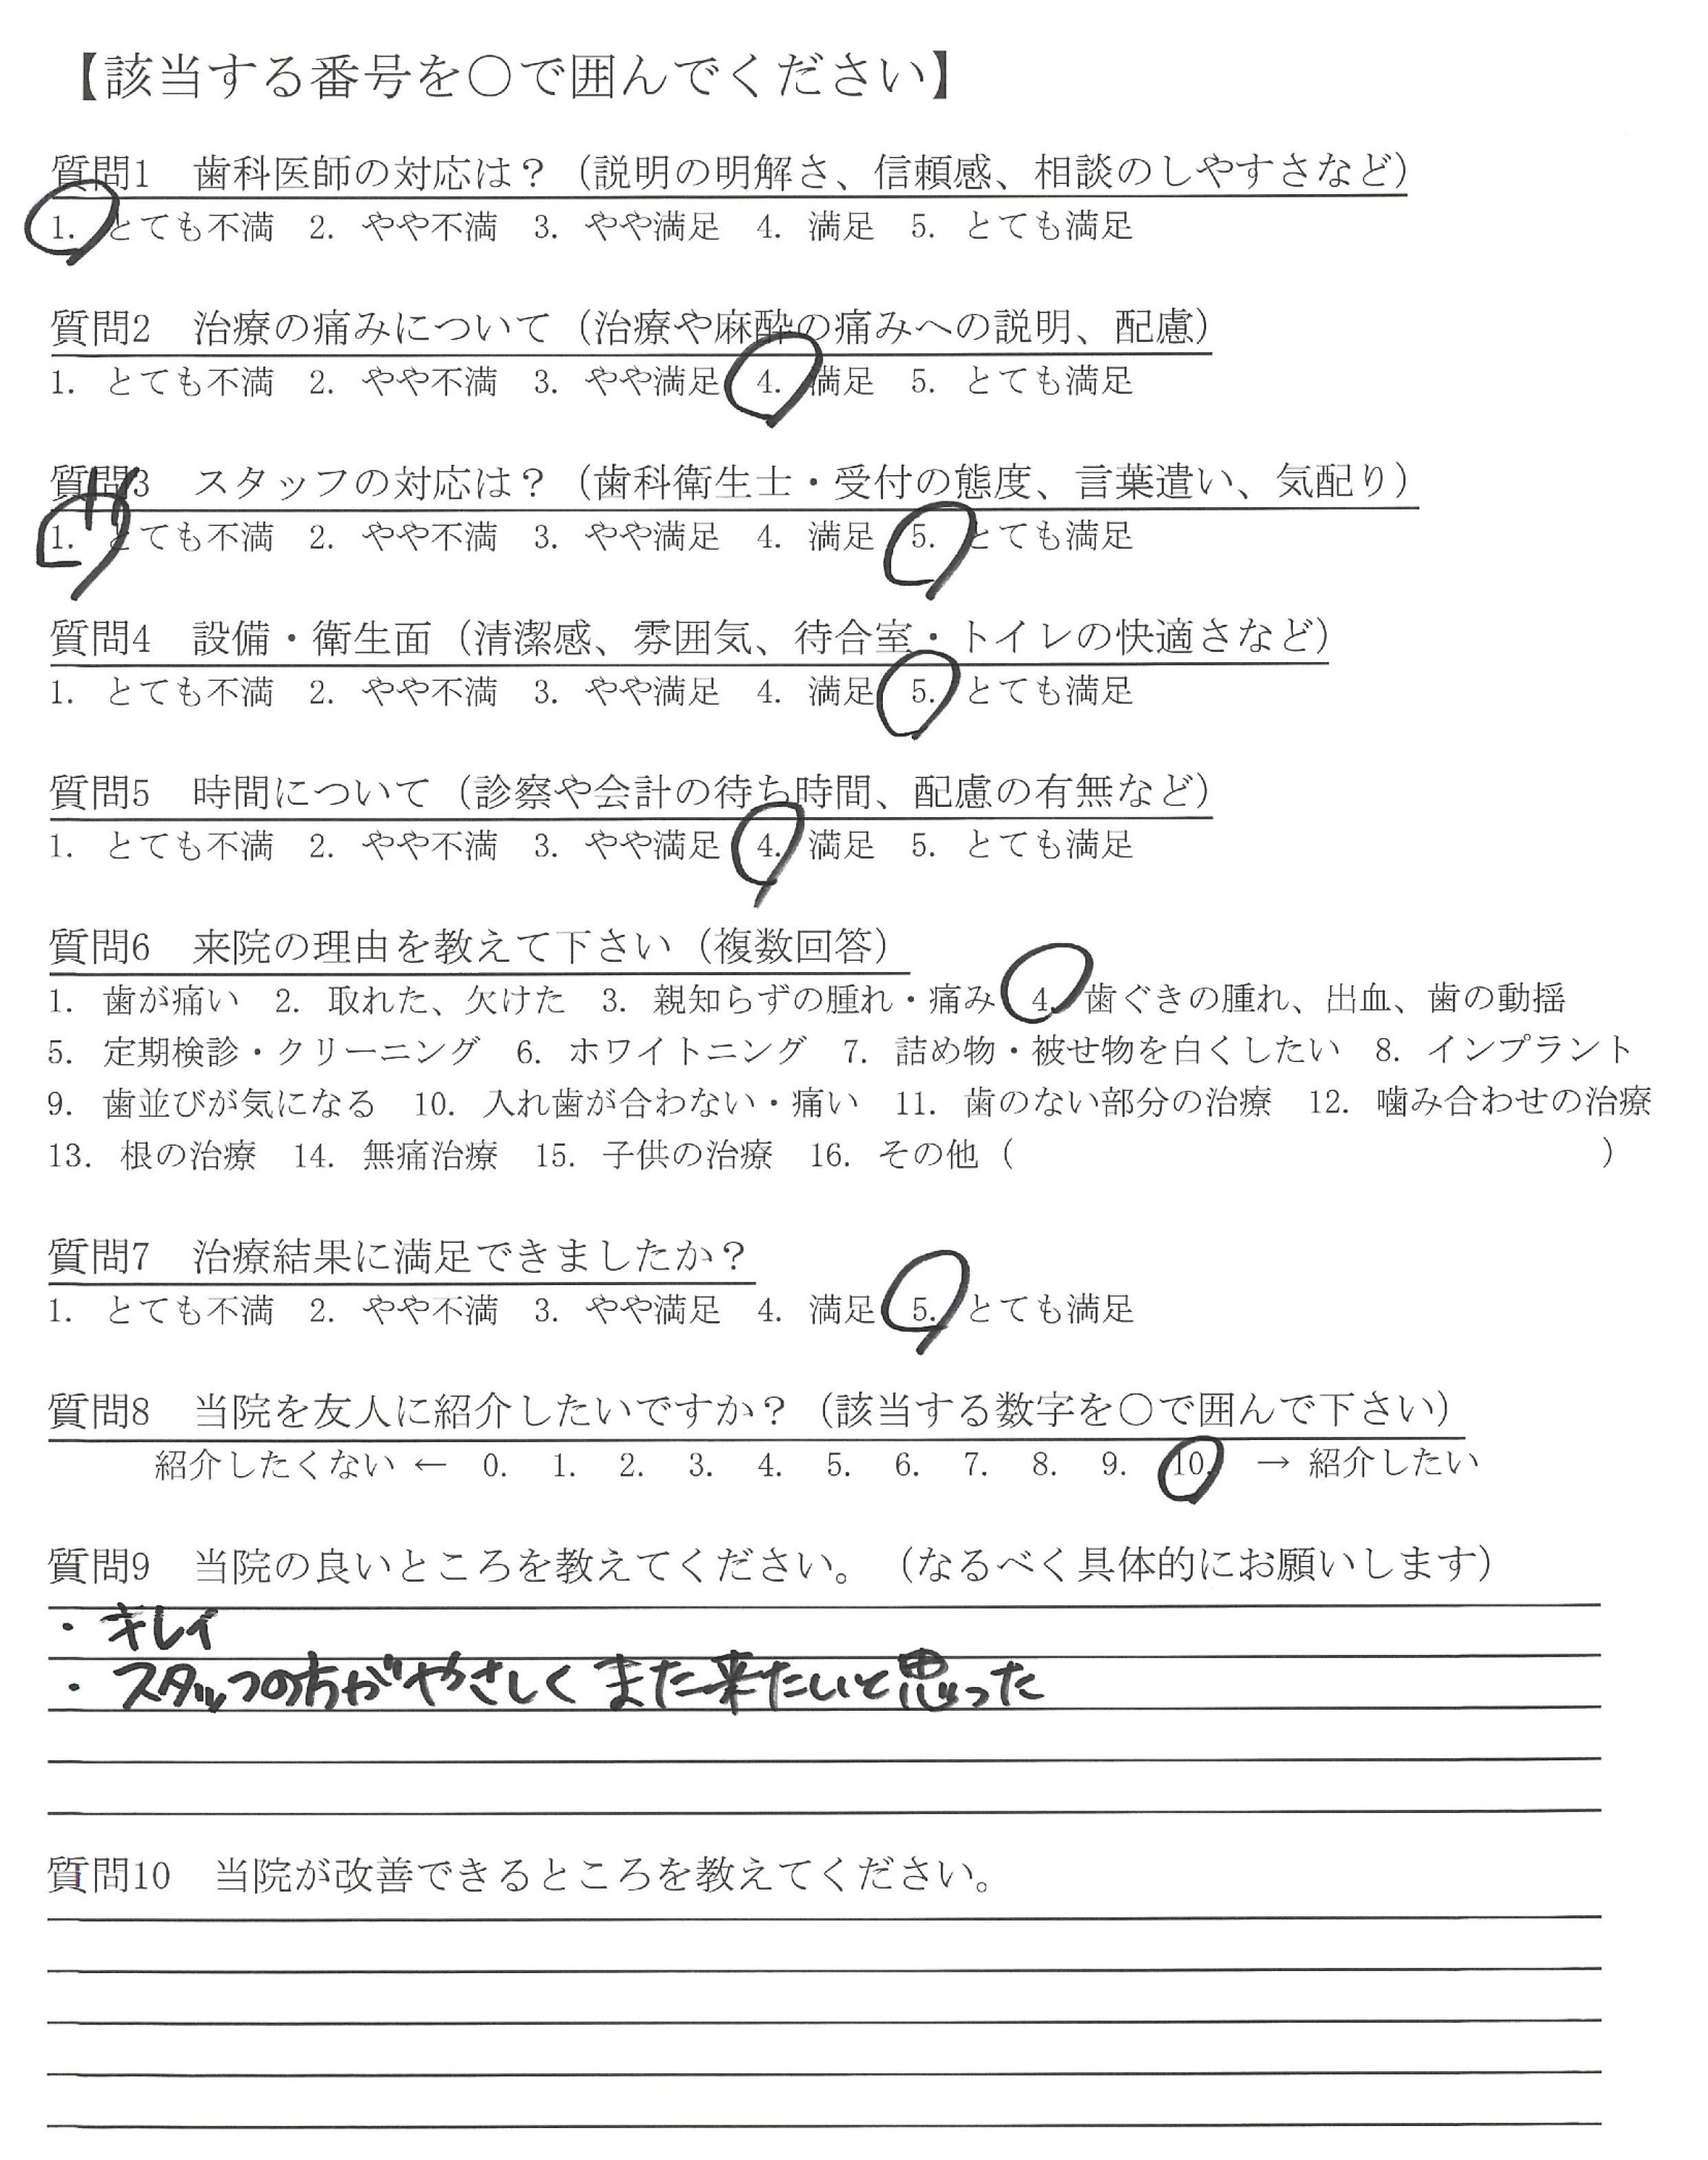 【該当する番号を○で囲んでください】
質問1　歯科医師の対応は？（説明の明解さ、信頼感、相談のしやすさなど）
1. とても不満　2. やや不満　3. やや満足　4. 満足　5. とても満足
質問2　治療の痛みについて（治療や麻酔の痛みへの説明、配慮）
1. とても不満　2. やや不満　3. やや満足　4. 満足　5. とても満足
質問3　スタッフの対応は？（歯科衛生士・受付の態度、言葉遣い、気配り）
1. とても不満　2. やや不満　3. やや満足　4. 満足　5. とても満足
質問4　設備・衛生面（清潔感、雰囲気、待合室・トイレの快適さなど）
1. とても不満　2. やや不満　3. やや満足　4. 満足　5. とても満足
質問5　時間について（診察や会計の待ち時間、配慮の有無など）
1. とても不満　2. やや不満　3. やや満足　4. 満足　5. とても満足
質問6　来院の理由を教えて下さい（複数回答）
1. 歯が痛い　2. 取れた、欠けた　3. 親知らずの腫れ・痛み　4. 歯ぐきの腫れ、出血、歯の動揺
5. 定期検診・クリーニング　6. ホワイトニング　7. 詰め物・被せ物を白くしたい　8. インプラント
9. 歯並びが気になる　10. 入れ歯が合わない・痛い　11. 歯のない部分の治療　12. 噛み合わせの治療
13. 根の治療　14. 無痛治療　15. 子供の治療　16. その他（　　　　　　　　　　　　　　　　）
質問7　治療結果に満足できましたか？
1. とても不満　2. やや不満　3. やや満足　4. 満足　5. とても満足
質問8　当院を友人に紹介したいですか？（該当する数字を○で囲んで下さい）
紹介したくない ← 0. 1. 2. 3. 4. 5. 6. 7. 8. 9. 10. → 紹介したい
質問9　当院の良いところを教えてください。（なるべく具体的にお願いします）
・キレイ
・スタッフの方がやさしく また来たいと思った
質問10　当院が改善できるところを教えてください。